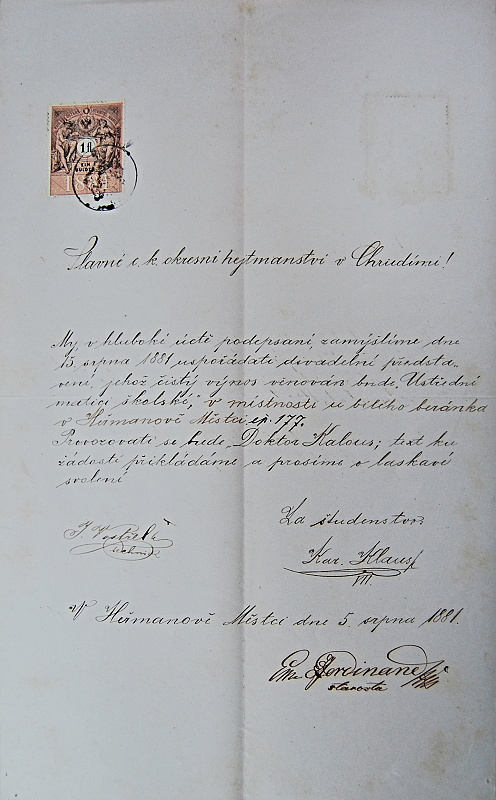 1 fl
EIN
GULDEN
Slavné c. k. okresní hejtmanství v Chrudimi!
My, v hluboké úctě podepsaní, zamýšlíme dne
15. srpna 1881 uspořádati divadelní předsta-
vení, jehož čistý výnos věnován bude „Ústřední
matici školské,“ v místnosti u bílého beránka
v Heřmanově Městci čp. 177.
Provozovati se bude „Doktor Kalous“; text ku
žádosti přikládáme a prosíme o laskavé
svolení
Za studenstvo:
Kar. Klaus
V Heřmanově Městci dne 5. srpna 1881.
Ferdinand
starosta